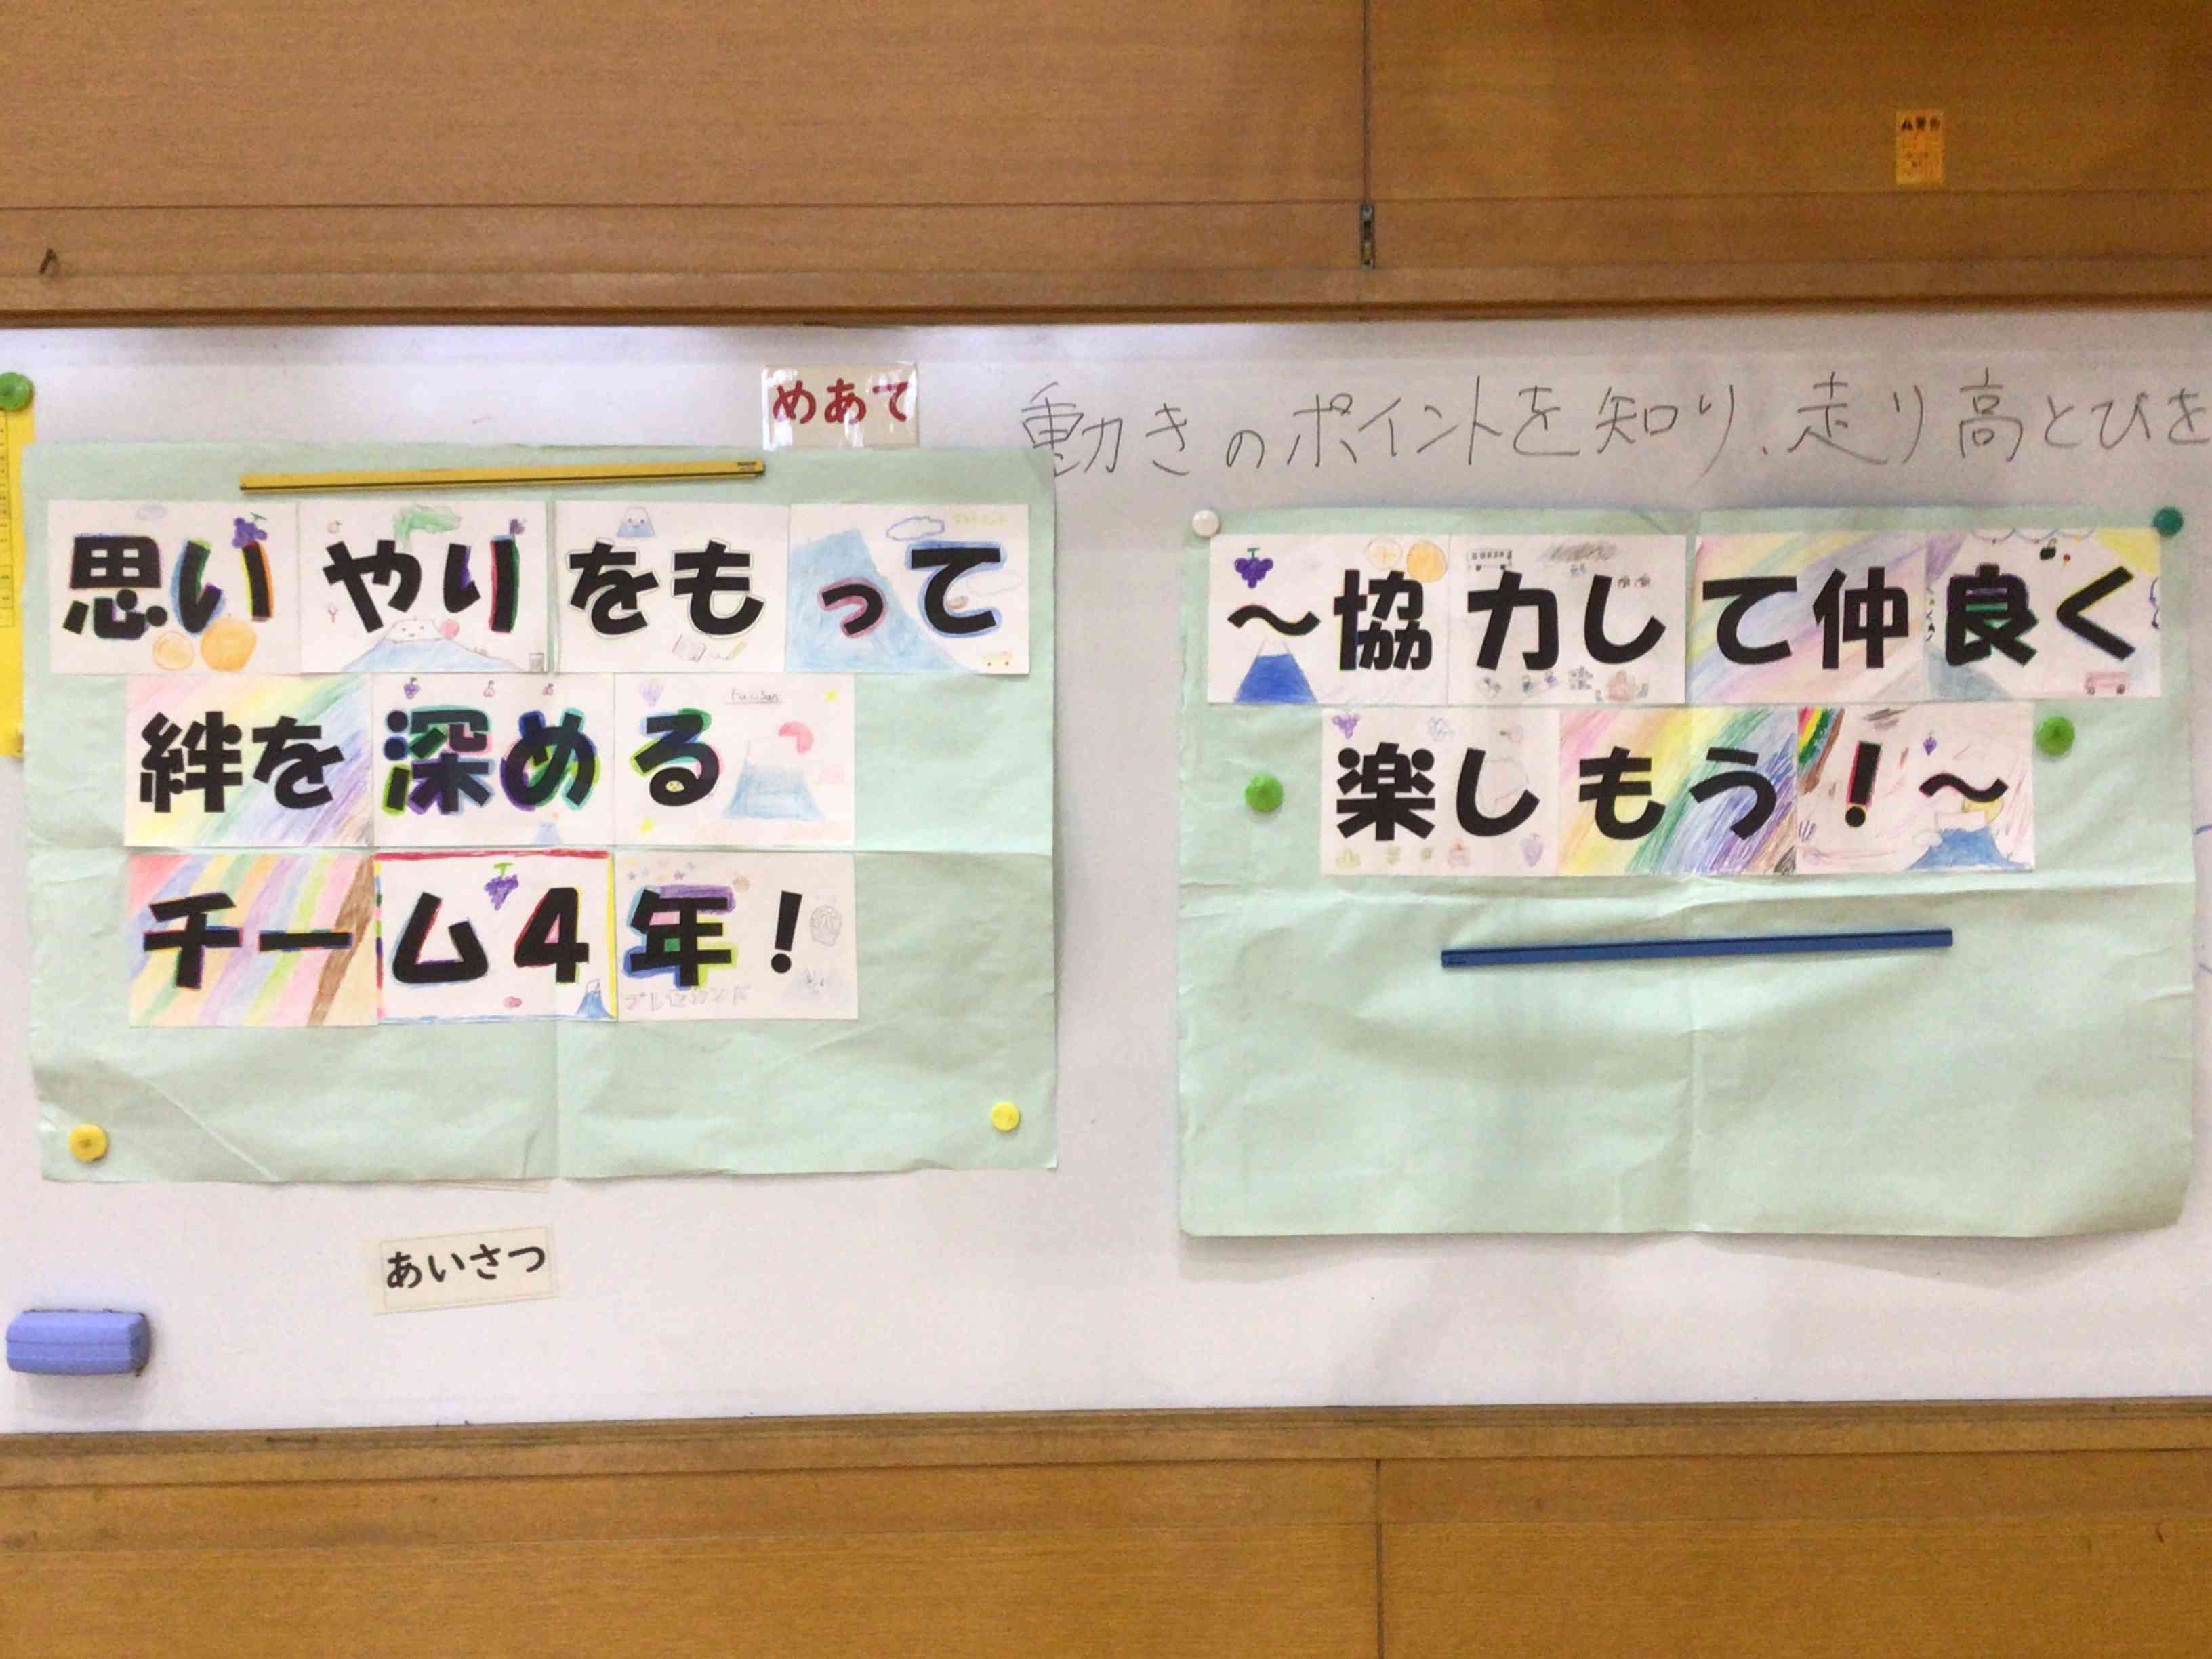 めあて
動きのポイントを知り、走り高とびを
思いやりをもって
絆を深める
Fujisan
チーム4年!
〜協力して仲良く
楽しもう!〜
あいさつ